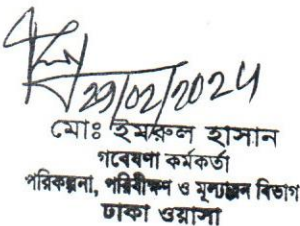 29/02/2024
মোঃ ইমরুল হাসান
গবেষণা কর্মকর্তা
পরিকল্পনা, পরিবীক্ষন ও মূল্যায়ন বিভাগ
ঢাকা ওয়াসা